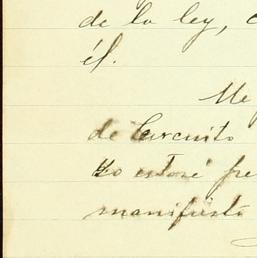 de la ley,
él.
Me
de Circuito
Yo estaré
manifiesto